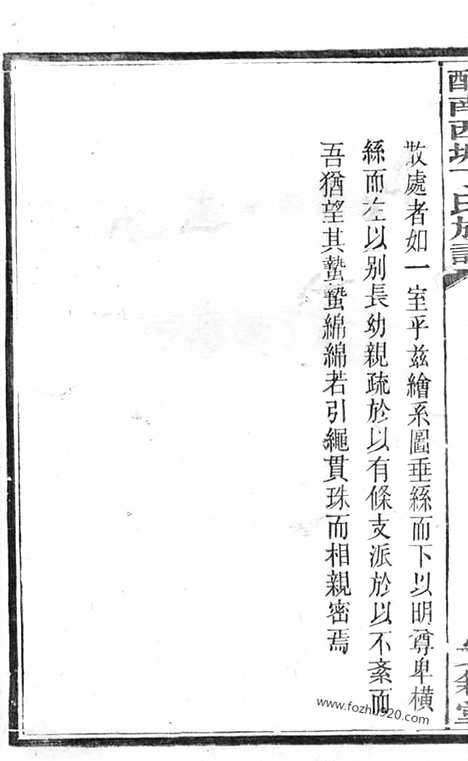 散處者如一室乎兹繪系圖垂絲而下以明尊卑橫
絲而左以别長幼親疏於以有條支派於以不紊而
吾猶望其蟄蟄綿綿若引繩貫珠而相親密焉
南西丁氏族譜
www.fozhu920.com